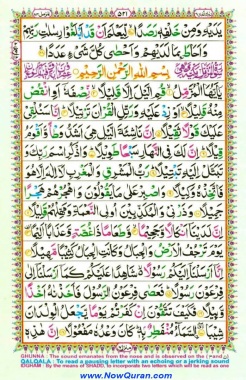 ۵۲۱
يَدَيْهِ وَمِنْ خَلْفِهٖ رَصَدًا لِّيَعْلَمَ اَنْ قَدْ اَبْلَغُوْا رِسٰلٰتِ رَبِّهِمْ
وَاَحَاطَ بِمَا لَدَيْهِمْ وَاَحْصٰى كُلَّ شَيْءٍ عَدَدًا
بِسْمِ اللّٰهِ الرَّحْمٰنِ الرَّحِيْمِ
يٰٓاَيُّهَا الْمُزَّمِّلُ قُمِ الَّيْلَ اِلَّا قَلِيْلًا نِّصْفَهٗٓ اَوِ انْقُصْ
مِنْهُ قَلِيْلًا اَوْ زِدْ عَلَيْهِ وَرَتِّلِ الْقُرْاٰنَ تَرْتِيْلًا اِنَّا سَنُلْقِيْ
عَلَيْكَ قَوْلًا ثَقِيْلًا اِنَّ نَاشِئَةَ الَّيْلِ هِيَ اَشَدُّ وَطْاً وَّاَقْوَمُ
قِيْلًا اِنَّ لَكَ فِي النَّهَارِ سَبْحًا طَوِيْلًا وَاذْكُرِ اسْمَ رَبِّكَ وَ
تَبَتَّلْ اِلَيْهِ تَبْتِيْلًا رَبُّ الْمَشْرِقِ وَالْمَغْرِبِ لَآ اِلٰهَ اِلَّا هُوَ
فَاتَّخِذْهُ وَكِيْلًا وَاصْبِرْ عَلٰى مَا يَقُوْلُوْنَ وَاهْجُرْهُمْ هَجْرًا
جَمِيْلًا وَذَرْنِيْ وَالْمُكَذِّبِيْنَ اُولِي النَّعْمَةِ وَمَهِّلْهُمْ قَلِيْلًا
اِنَّ لَدَيْنَآ اَنْكَالًا وَّجَحِيْمًا وَّطَعَامًا ذَا غُصَّةٍ وَّعَذَابًا اَلِيْمًا
يَوْمَ تَرْجُفُ الْاَرْضُ وَالْجِبَالُ وَكَانَتِ الْجِبَالُ كَثِيْبًا مَّهِيْلًا
اِنَّآ اَرْسَلْنَآ اِلَيْكُمْ رَسُوْلًا شَاهِدًا عَلَيْكُمْ كَمَآ اَرْسَلْنَآ اِلٰى
فِرْعَوْنَ رَسُوْلًا فَعَصٰى فِرْعَوْنُ الرَّسُوْلَ فَاَخَذْنٰهُ اَخْذًا
وَّبِيْلًا فَكَيْفَ تَتَّقُوْنَ اِنْ كَفَرْتُمْ يَوْمًا يَّجْعَلُ الْوِلْدَانَ
شِيْبًا السَّمَآءُ مُنْفَطِرٌ بِهٖ كَانَ وَعْدُهٗ مَفْعُوْلًا اِنَّ هٰذِهٖ
GHUNNA : The sound emanates from the nose and is observed on the
QALQALA : To read a pausing letter with an echoing or a jerking sound
IDGHAM : By the means of SHADD, to incorporate two letters which will be read as one
www.NowQuran.com